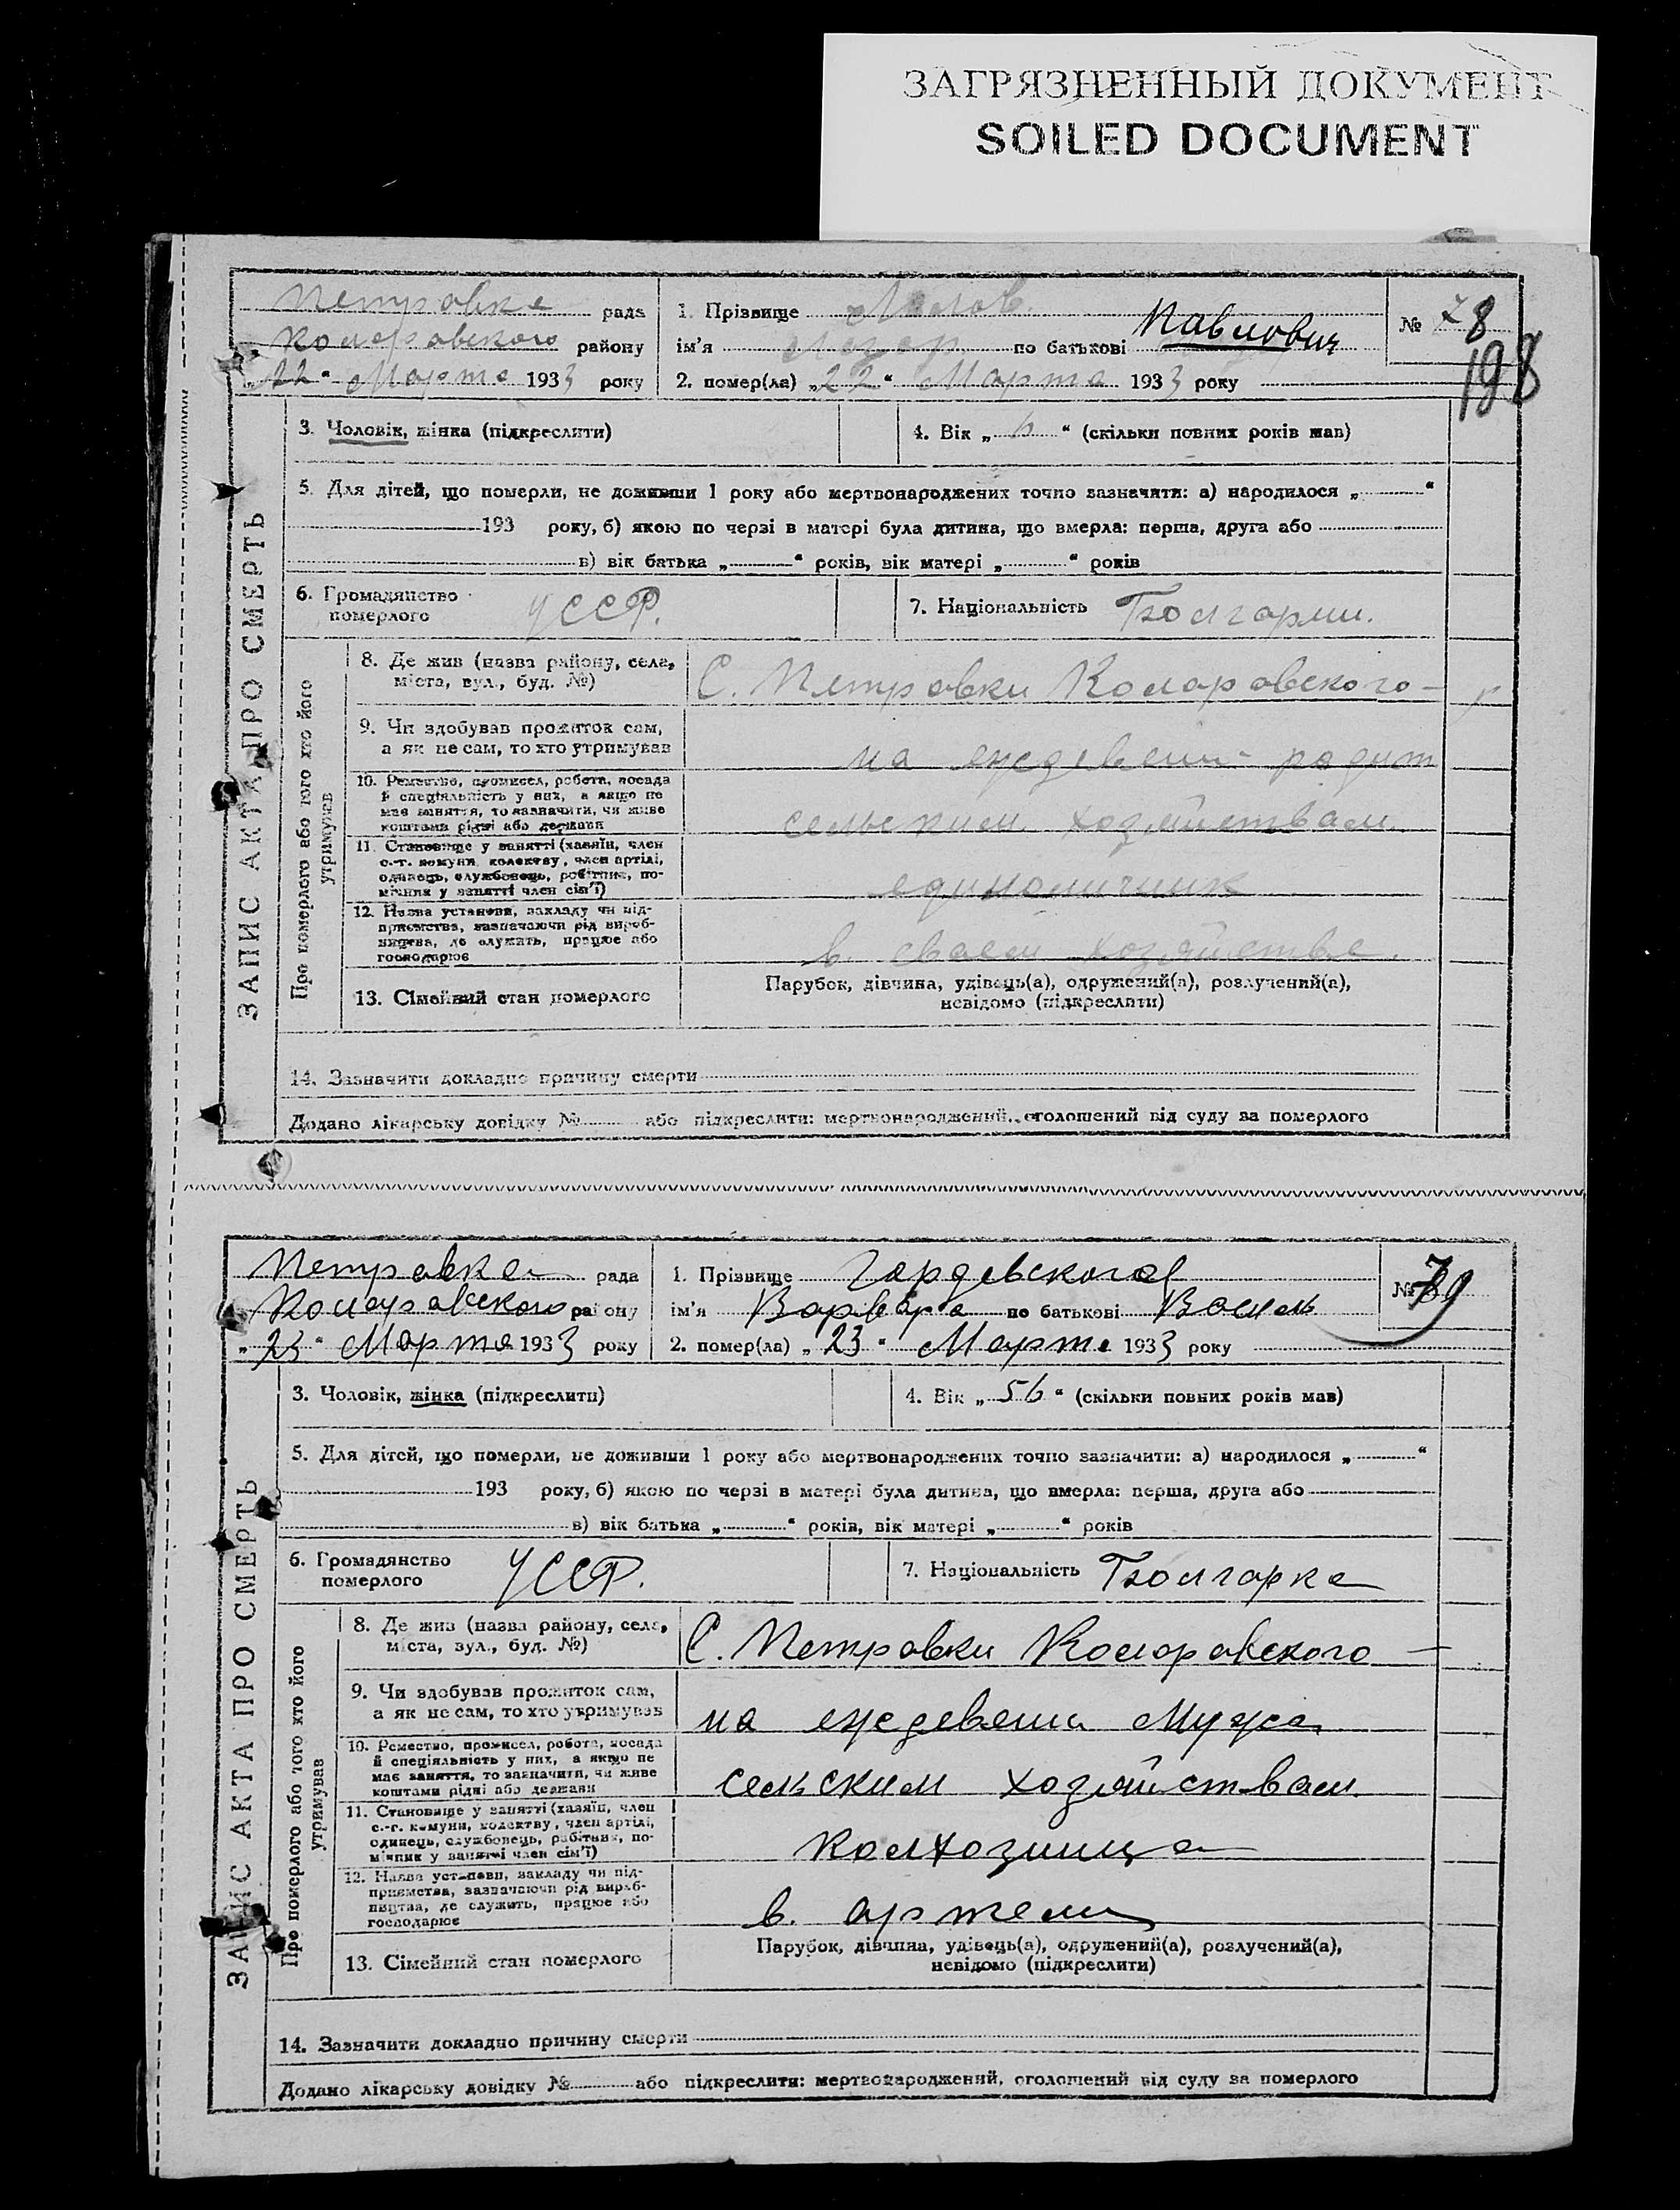 ЗАГРЯЗНЕННЫЙ ДОКУМЕНТ
SOILED DOCUMENT
Петровка рада
Коларовского району
„22“ Марта 1933 року
1. Прізвище
ім'я Лазар по батькові Павлович
2. помер(ла) „22“ Марта 1933 року
№ 78
198
ЗАПИС АКТА ПРО СМЕРТЬ
3. Чоловік, жінка (підкреслити)
4. Вік „ “ (скільки повних років мав)
5. Для дітей, що померли, не доживши 1 року або мертвонароджених точно зазначити: а) народилося „ “
193 року, б) якою по черзі в матері була дитина, що вмерла: перша, друга або
в) вік батька „ “ років, вік матері „ “ років
6. Громадянство
померлого
УССР.
7. Національність Болгарин.
Про померлого або того хто його
утримував
8. Де жив (назва району, села,
міста, вул., буд. №)
С. Петровки Коларовского -
9. Чи здобував прожиток сам,
а як не сам, то хто утримував
на еждевени родит
10. Ремество, промисел, робота, посада
й спеціяльність у них, а якщо не
має заняття, то зазначити, чи живе
коштами рідні або держави
сельским хозяйствам.
11. Становище у занятті (хазяїн, член
с.-г. комуни, колективу, член артілі,
одинець, службовець, робітник, по-
мічник у занятті член сім'ї)
единоличник
12. Назва установи, закладу чи під-
приємства, зазначаючи рід вироб-
ництва, де служить, працює або
господарює
в сваем хозяйстве.
13. Сімейний стан померлого
Парубок, дівчина, удівець(а), одружений(а), розлучений(а),
невідомо (підкреслити)
14. Зазначити докладно причину смерти
Додано лікарську довідку № або підкреслити: мертвонароджений, оголошений від суду за померлого
Петровка рада
Коларовского району
„23“ Марта 1933 року
1. Прізвище
ім'я Варвара по батькові Васил
2. помер(ла) „23“ Марта 1933 року
№ 79
ЗАПИС АКТА ПРО СМЕРТЬ
3. Чоловік, жінка (підкреслити)
4. Вік „56“ (скільки повних років мав)
5. Для дітей, що померли, не доживши 1 року або мертвонароджених точно зазначити: а) народилося „ “
193 року, б) якою по черзі в матері була дитина, що вмерла: перша, друга або
в) вік батька „ “ років, вік матері „ “ років
6. Громадянство
померлого
УССР.
7. Національність Болгарка
Про померлого або того хто його
утримував
8. Де жив (назва району, села,
міста, вул., буд. №)
С. Петровки Коларовского -
9. Чи здобував прожиток сам,
а як не сам, то хто утримував
на еждевени Мужа
10. Ремество, промисел, робота, посада
й спеціяльність у них, а якщо не
має заняття, то зазначити, чи живе
коштами рідні або держави
сельским хозяйствам.
11. Становище у занятті (хазяїн, член
с.-г. комуни, колективу, член артілі,
одинець, службовець, робітник, по-
мічник у занятті член сім'ї)
колхозница
12. Назва установи, закладу чи під-
приємства, зазначаючи рід вироб-
ництва, де служить, працює або
господарює
в. артели
13. Сімейний стан померлого
Парубок, дівчина, удівець(а), одружений(а), розлучений(а),
невідомо (підкреслити)
14. Зазначити докладно причину смерти
Додано лікарську довідку № або підкреслити: мертвонароджений, оголошений від суду за померлого